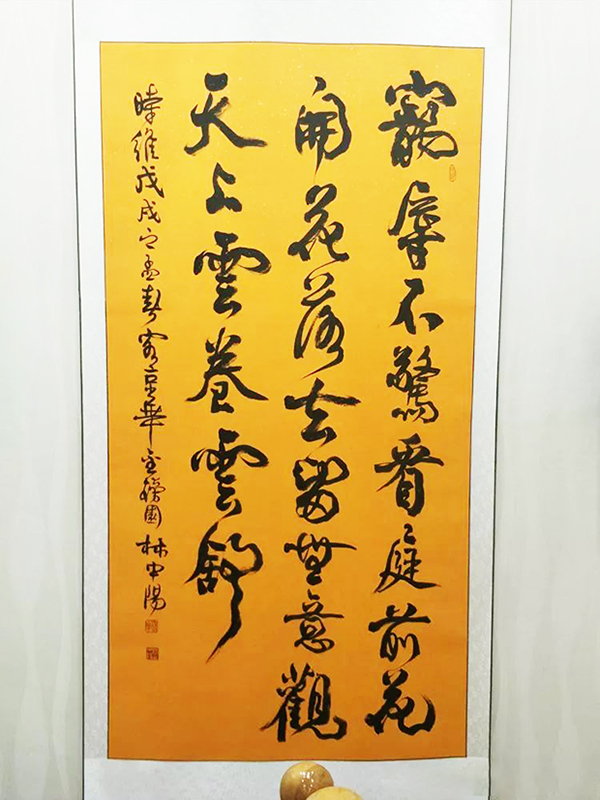 寵辱不驚看庭前花
開花落去留無意觀
天上雲卷雲舒
時維戊戌之孟春客京華金榜國林中陽